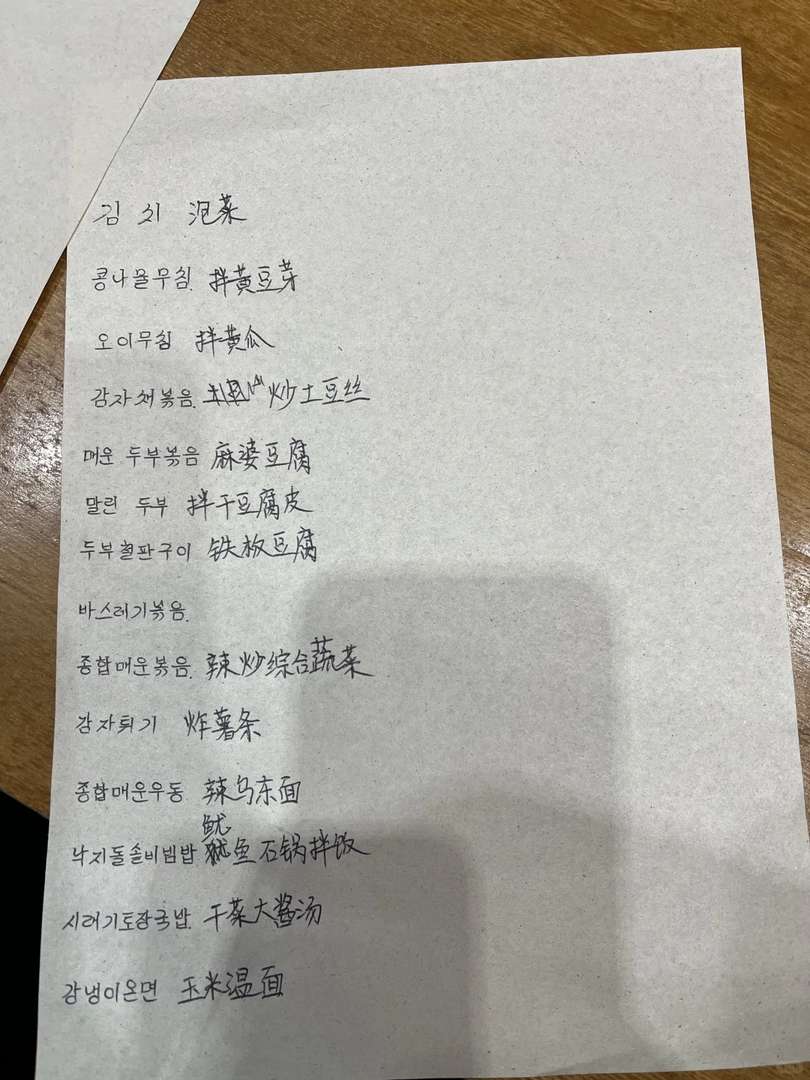 김치 泡菜
콩나물무침. 拌黄豆芽
오이무침 拌黄瓜
감자채볶음. 炒土豆丝
매운 두부볶음 麻婆豆腐
말린 두부 拌干豆腐皮
두부철판구이 铁板豆腐
바스레기볶음.
종합매운볶음. 辣炒综合蔬菜
감자튀기 炸薯条
종합매운우동 辣乌东面
鱿
낙지돌솥비빔밥 鱼石锅拌饭
시래기토장국밥. 干菜大酱汤
강냉이온면 玉米温面